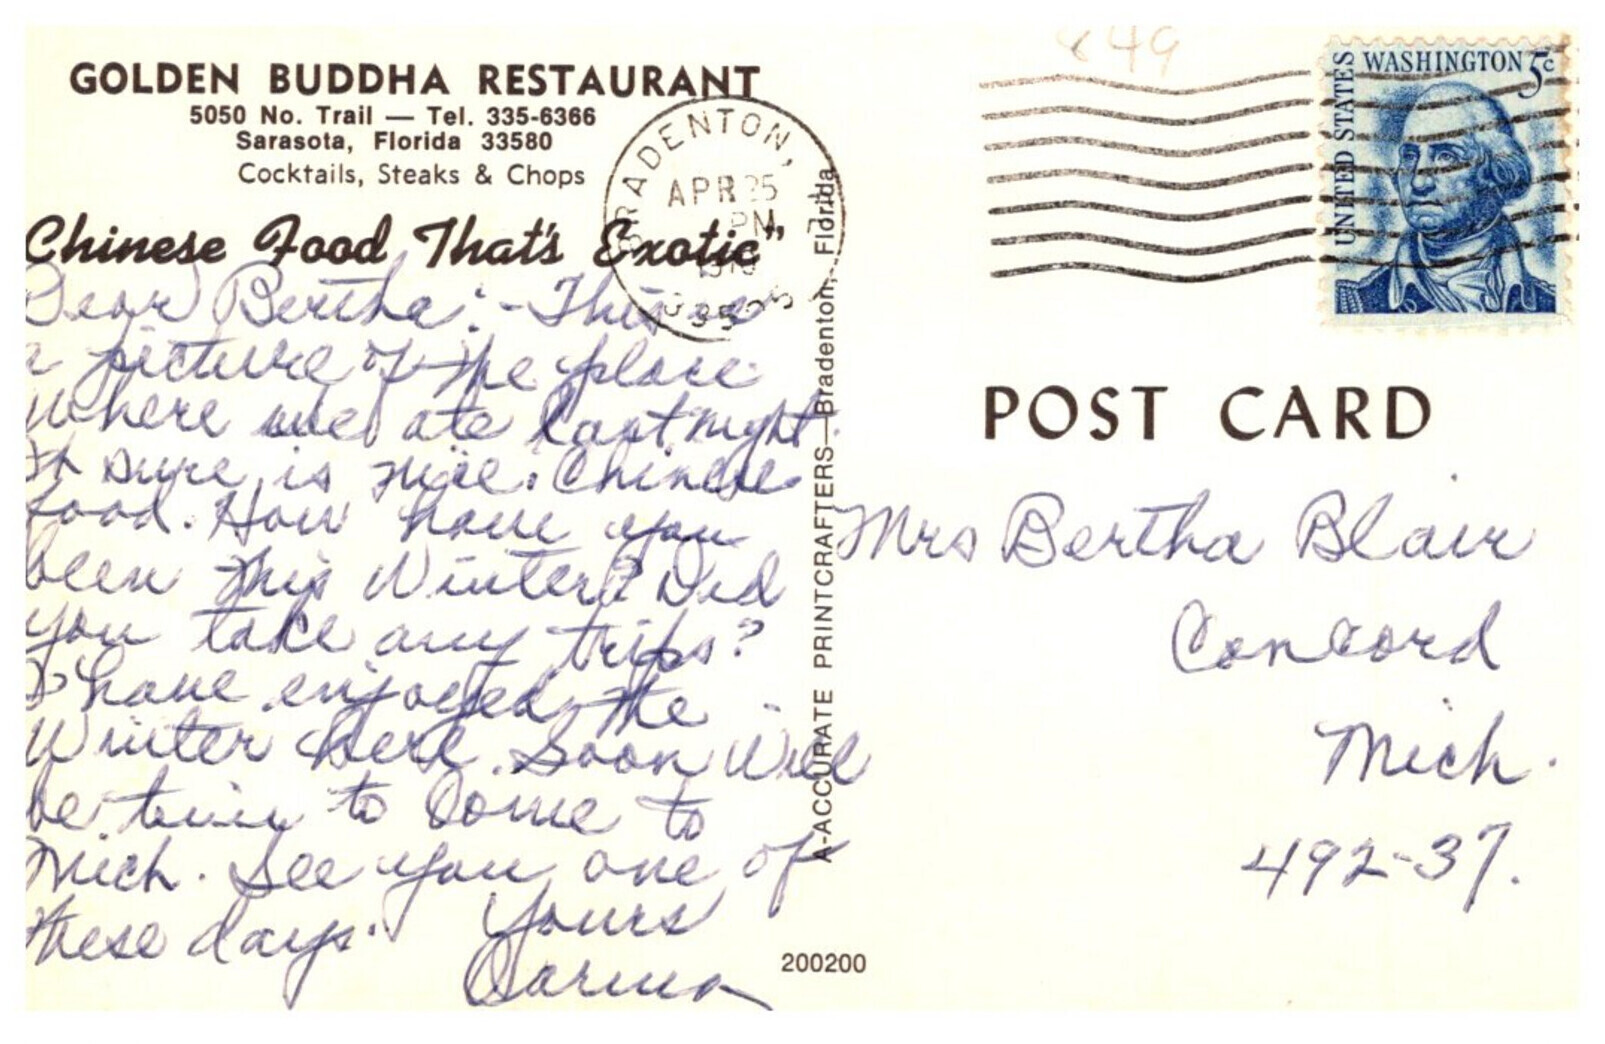 GOLDEN BUDDHA RESTAURANT
5050 No. Trail — Tel. 335-6366
Sarasota, Florida 33580
Cocktails, Steaks & Chops
Chinese Food That's Exotic"
Dear Bertha:- This is
a picture of the place
where we ate last night.
It sure is nice. Chinese
food. How have you
been this Winter? Did
you take any trips?
I have enjoyed the
Winter here. Soon will
be time to come to
Mich. See you one of
these days. Yours
BRADENTON,
APR 25
PM
A-ACCURATE PRINTCRAFTERS—Bradenton, Florida
200200
849
UNITED STATES
WASHINGTON 5c
POST CARD
Mrs Bertha Blair
Concord
Mich.
492-37.